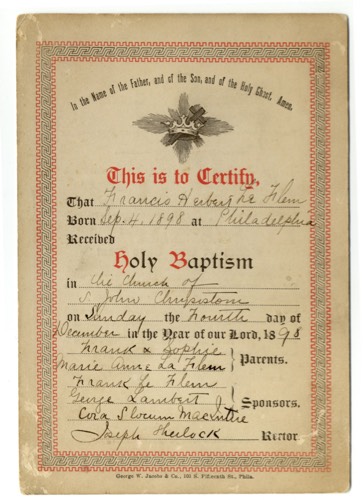 In the Name of the Father, and of the Son, and of the Holy Ghost. Amen.
This is to Certify,
That Francis Herbert Le Flem
Born Sep. 4, 1898 at Philadelphia
Received
Holy Baptism
in the Church of
S. John Chrysostom
on Sunday the Fourth day of
December in the Year of our Lord, 1898
Frank & Sophie
Marie Anne La Flem } Parents.
Frank Le Flem
George Lambert } Sponsors.
Cora Slocum MacIntire
Joseph Sherlock Rector
George W. Jacobs & Co., 103 S. Fifteenth St., Phila.